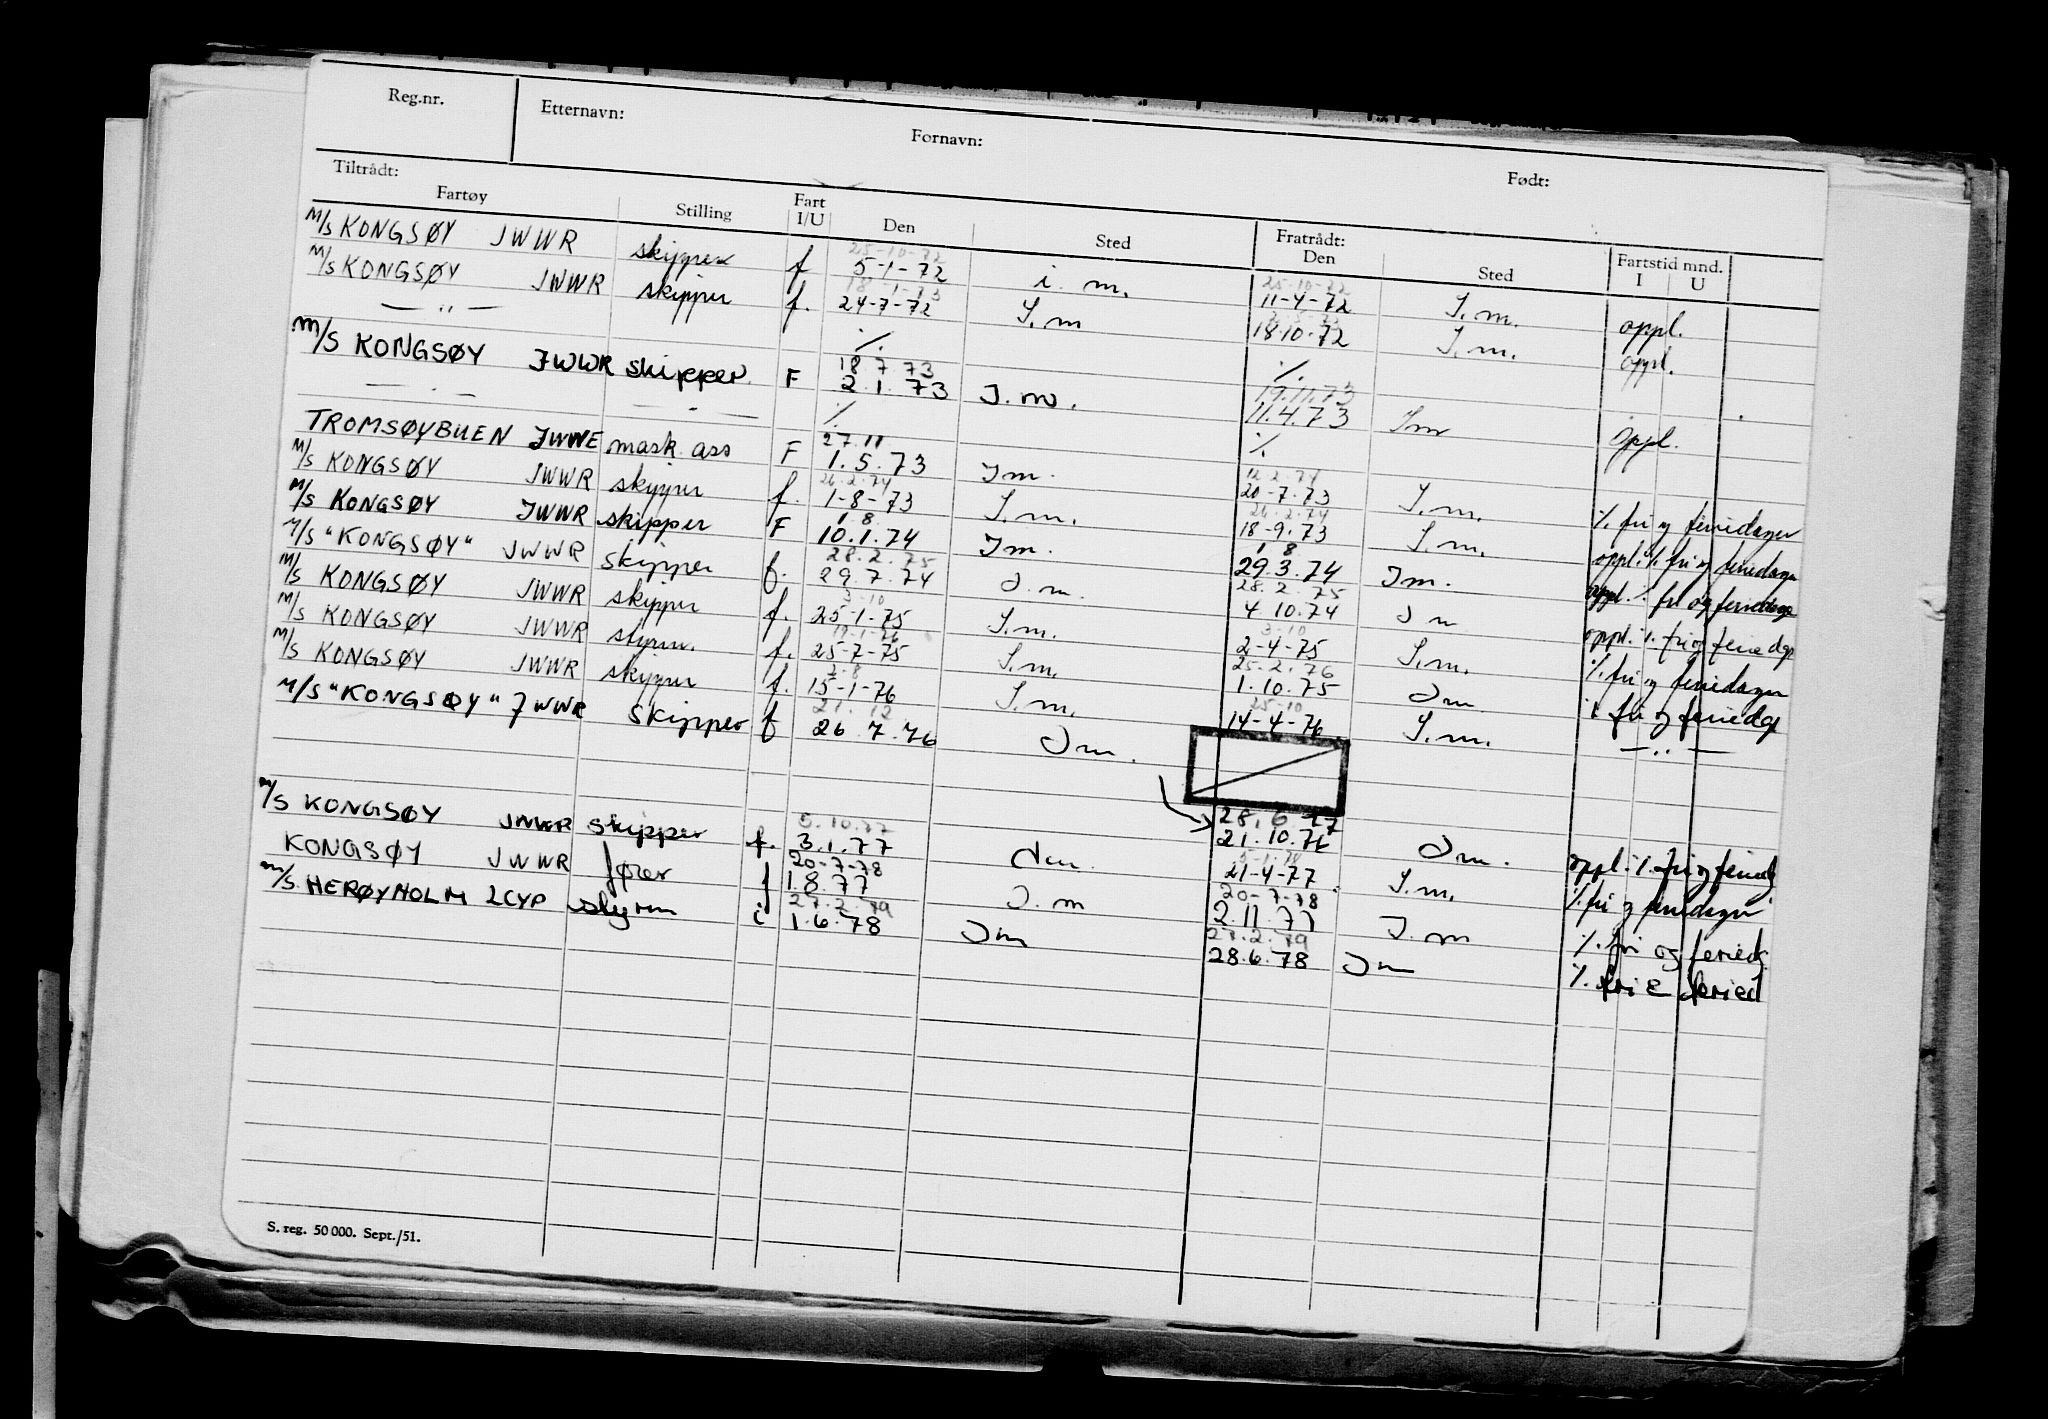 Reg.nr. Etternavn: Fornavn: Født:
Tiltrådt: Fratrådt:
Fartøy Stilling Fart I/U Den Sted Den Sted Fartstid mnd. I U
25-10-72 25-10-72
M/S KONGSØY JWWR skipper f 5-1-72 i. m. 11-4-72 I.m. oppl.
18-1-73
M/S KONGSØY JWWR skipper f. 24-7-72 I.m 18.10.72 I.m. oppl.
— " — ./. ./.
18 7 73 19.11.73
M/S KONGSØY JWWR skipper F 2.1.73 I.m. 11.4.73 Im oppl.
— " — — " — ./. ./.
27.11 12.2.74
TROMSØYBUEN JWWE mask. ass F 1.5.73 Im. 20-7-73 I.m. ./. fri og feriedager
26.2.74 26.2.74
M/S KONGSØY JWWR skipper f. 1-8-73 I.m. 18-9.73 I.m. oppl. ./. fri og feriedager
1.8 1 8
M/S KONGSØY JWWR skipper F 10.1.74 Im. 29.3.74 Im. oppl. ./. fri og feriedage
28.2.75 28.2.75
M/S "KONGSØY" JWWR skipper f. 29.7.74 I.m. 4.10.74 I m oppl. ./. fri og feriedge
3-10 3-10
M/S KONGSØY JWWR skipper f. 25-1-75 I.m. 2-4-75 I.m. ./. fri og feriedager
25.2.76
M/S KONGSØY JWWR styrm. f. 25-7-75 I.m. 1.10.75 Im ./. fri og feriedge
3-8 25-10
M/S KONGSØY JWWR skipper f. 15-1-76 I.m. 14-4-76 I.m. — " —
21.12
M/S "KONGSØY" JWWR skipper f 26.7.76 Im.
28.6.77
21.10.76 Im. oppl. ./. fri og feriedg
5.10.77
M/S KONGSØY JWWR skipper f. 3.1.77 Im. 21-4-77 I.m. ./. fri og feriedager
20-7-78 20-7-78
KONGSØY JWWR fører f 1.8.77 I.m 2.11.77 I.m ./. fri og feriedg.
27.2.79 27.2.79
M/S. HERØYHOLM LCYP styrm i 1.6.78 Im 28.6.78 Im ./. fri & feried
S. reg. 50 000. Sept./51.